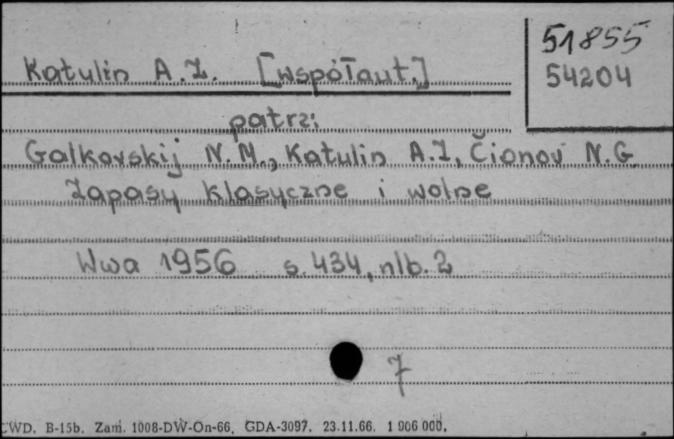 51855
Katulin A.Z. [współaut.]
54204
patrz:
Galkovskij N.M., Katulin A.Z, Čionov N.G.
Zapasy klasyczne i wolne
Wwa 1956 s. 434, nlb. 2
7
CWD. B-15b. Zam. 1008-DW-On-66. GDA-3097. 23.11.66. 1 006 000.